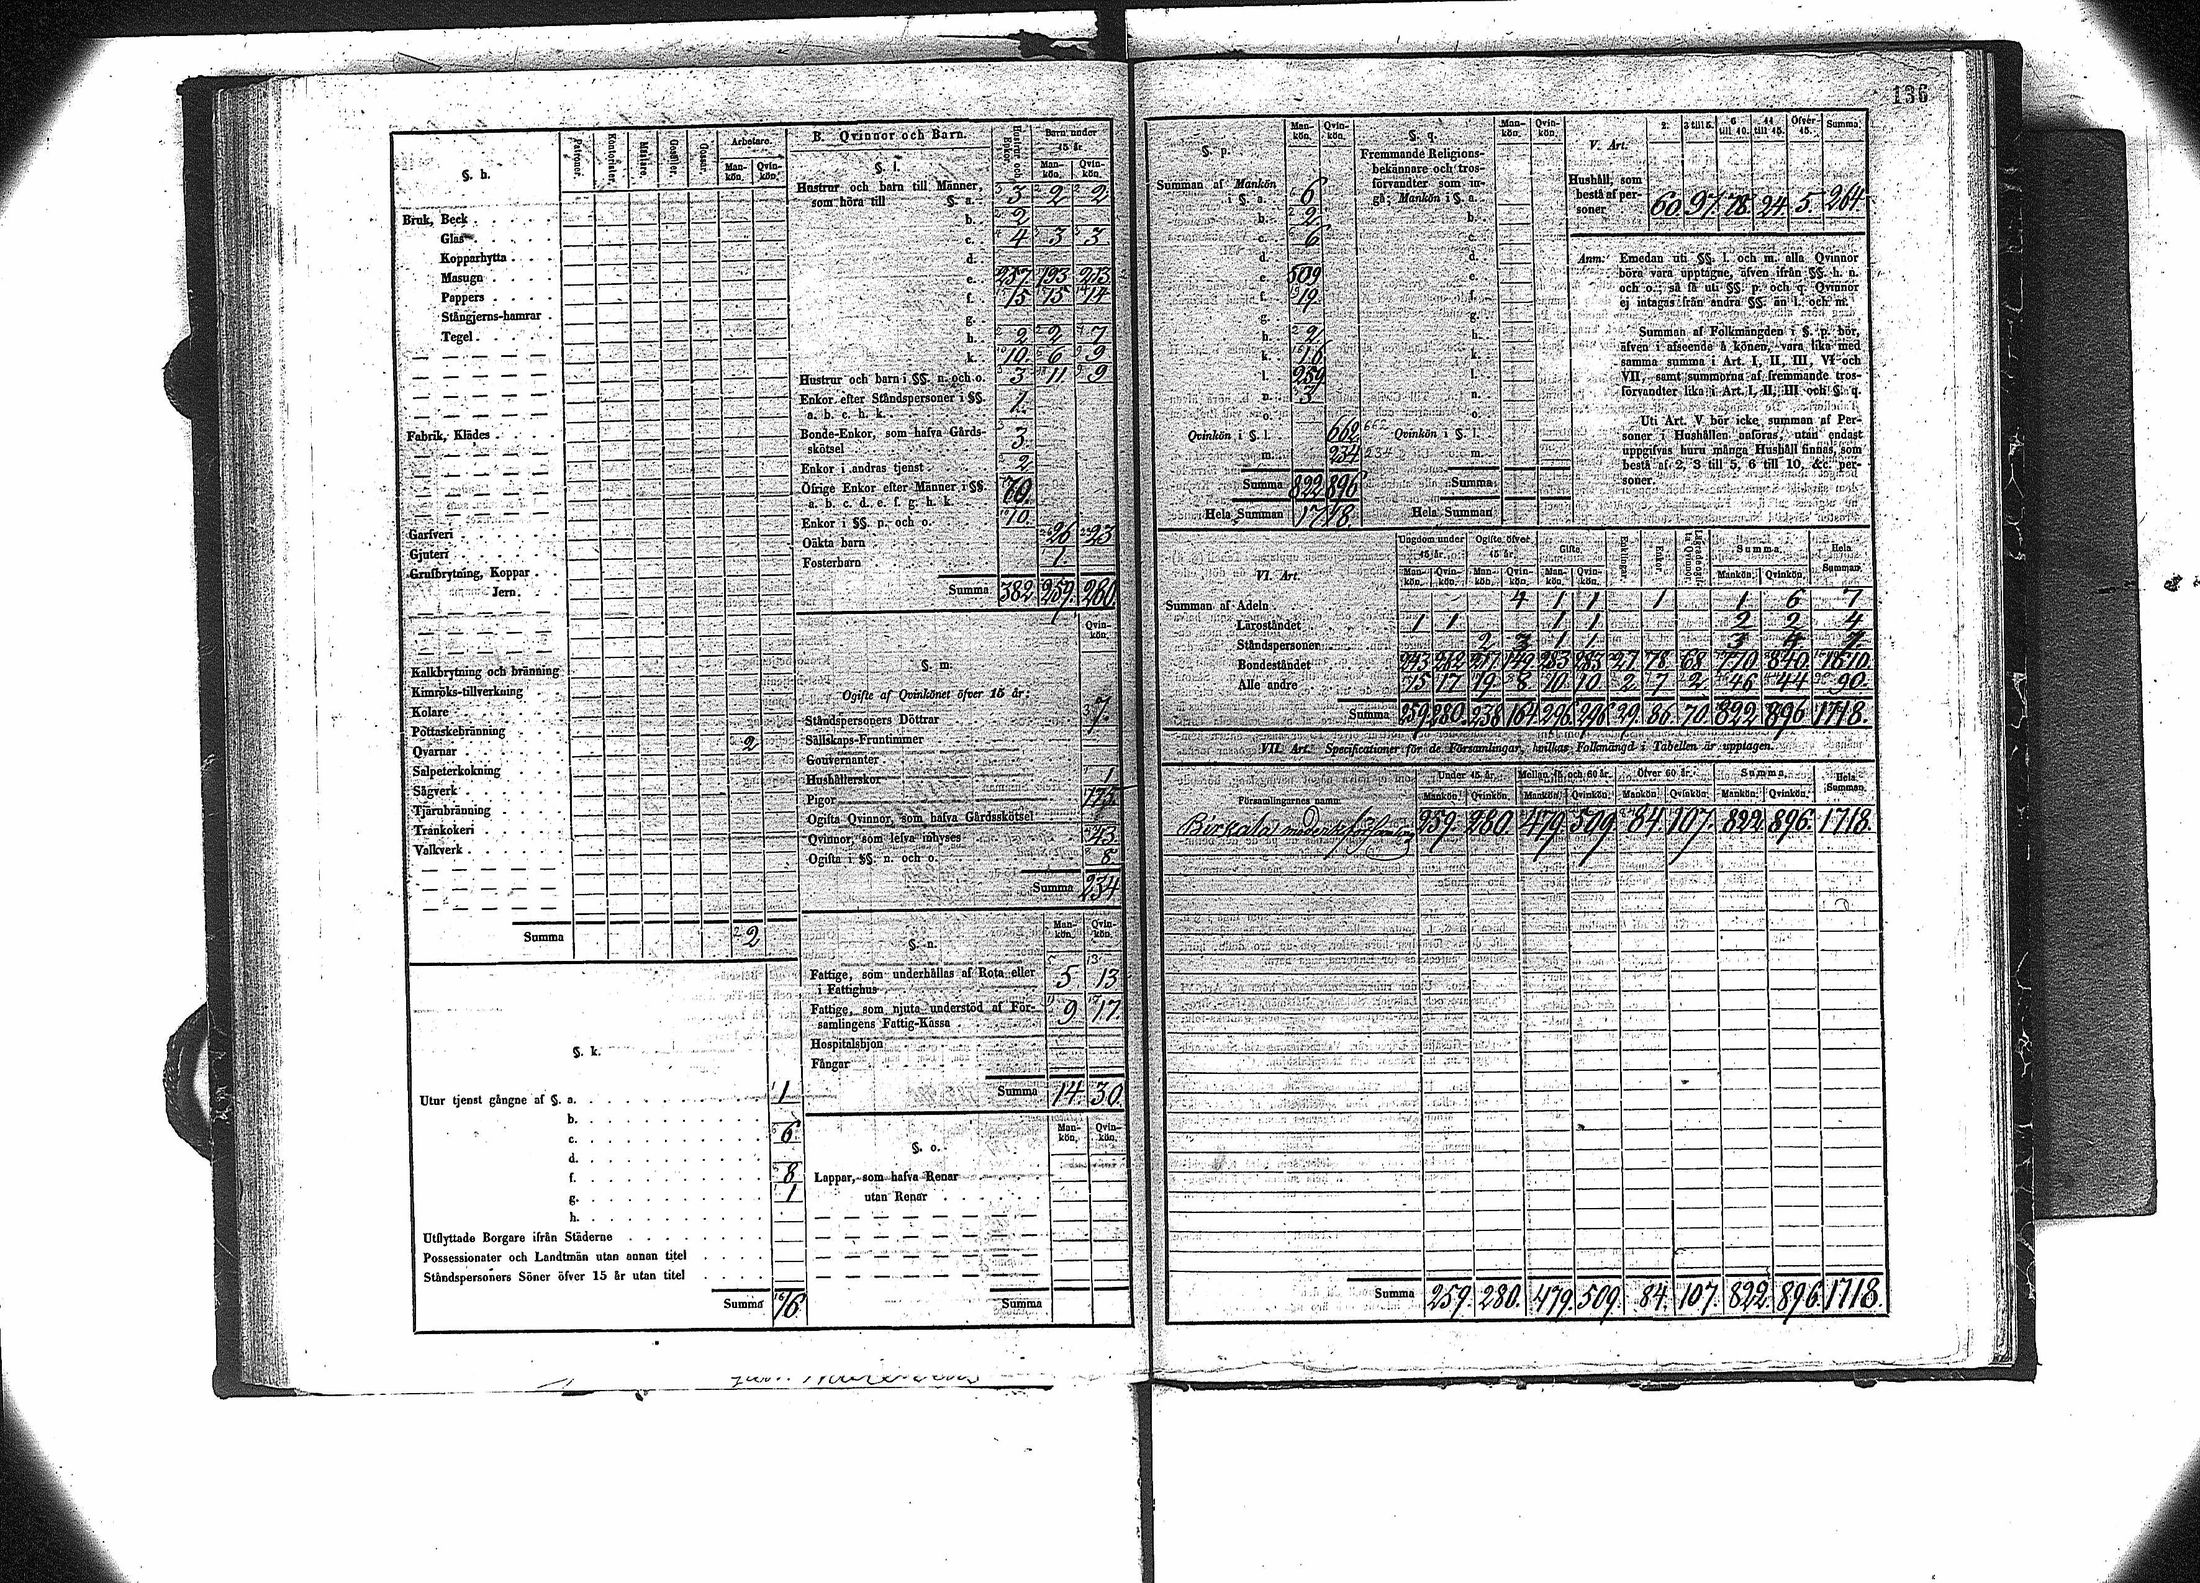 136
§. h.
Patroner. Kontorister. Mästare. Gesäller. Gossar. Arbetare.
Mankön. Qvinkön.
Bruk, Beck
Glas
Kopparhytta
Masugn
Pappers
Stångjerns-hamrar
Tegel
Fabrik, Klädes
Garfveri
Gjuteri
Grufbrytning, Koppar
Jern
Kalkbrytning och bränning
Kimröks-tillverkning
Kolare
Pottaskebränning
Qvarnar 2
Salpeterkokning
Sågverk
Tjärubränning
Trankokeri
Valkverk
Summa 2
§. k.
Utur tjenst gångne af §. a. 1
b.
c. 6
d.
f. 8
g. 1
h.
Utflyttade Borgare ifrån Städerne
Possessionater och Landtmän utan annan titel
Ståndspersoners Söner öfver 15 år utan titel
Summa 16
B. Qvinnor och Barn.
Hustrur och Enkor. Barn under 15 år
Mankön. Qvinkön.
§. l.
Hustrur och barn till Männer,
som höra till §. a. 3 2 2
b. 2
c. 4 3 3
d.
e. 257 193 213
f. 15 15 14
g.
h. 2 2 7
k. 10 6 9
Hustrur och barn i §§. n. och o. 3 11 9
Enkor efter Ståndspersoner i §§.
a. b. c. h. k. 1
Bonde-Enkor, som hafva Gårds-
skötsel 3
Enkor i andras tjenst 2
Öfrige Enkor efter Männer i §§.
a. b. c. d. e. f. g. h. k. 70
Enkor i §§. n. och o. 10
Oäkta barn 26 23
Fosterbarn 1
Summa 382 259 280
§. m. Qvinkön.
Ogifte af Qvinkönet öfver 15 år:
Ståndspersoners Döttrar 7
Sällskaps-Fruntimmer
Gouvernanter
Hushållerskor 1
Pigor 175
Ogifta Qvinnor, som hafva Gårdsskötsel
Qvinnor, som lefva inhyses 43
Ogifta i §§. n. och o. 8
Summa 234
§. n. Mankön. Qvinkön.
Fattige, som underhållas af Rota eller
i Fattighus 5 13
Fattige, som njuta understöd af För-
samlingens Fattig-Kassa 9 17
Hospitalshjon
Fångar
Summa 14 30
§. o. Mankön. Qvinkön.
Lappar, som hafva Renar
utan Renar
Summa
§. p. Mankön. Qvinkön.
Summan af Mankön
i §. a. 6
b. 2
c. 6
d.
e. 509
f. 19
g.
h. 2
k. 16
l. 259
n. 3
o.
Qvinkön i §. l. 662
m. 234
Summa 822 896
Hela Summan 1718
§. q. Mankön. Qvinkön.
Fremmande Religions-
bekännare och tros-
förvandter som in-
gå; Mankön i §. a.
b.
c.
d.
e.
f.
g.
h.
k.
l.
n.
o.
Qvinkön i §. l.
m.
Summa
Hela Summan
V. Art. 2. 3 till 5. 6 till 10. 11 till 15. Öfver 15. Summa.
Hushåll, som
bestå af per-
soner 60. 97. 78. 24. 5. 264.
Anm. Emedan uti §§. l. och m. alla Qvinnor
böra vara upptagne, äfven ifrån §§. h. n.
och o.; så få uti §§. p. och q. Qvinnor
ej intagas från andra §§. än l. och m.
Summan af Folkmängden i §. p. bör,
äfven i afseende å könen, vara lika med
samma summa i Art. I, II, III, VI och
VII, samt summorna af fremmande tros-
förvandter lika i Art. I, II, III och §. q.
Uti Art. V bör icke summan af Per-
soner i Hushållen anföras, utan endast
uppgifvas huru många Hushåll finnas, som
bestå af 2, 3 till 5, 6 till 10, &c. per-
soner.
VI. Art. Ungdom under 15 år. Ogifte öfver 15 år. Gifte. Enklingar. Enkor. Summa. Hela Summan.
Mankön. Qvinkön. Mankön. Qvinkön. Mankön. Qvinkön. Mankön. Qvinkön.
Summan af Adeln 4 1 1 1 1 6 7
Läroståndet 1 1 1 1 2 2 4
Ståndspersoner 2 3 1 1 3 4 7
Bondeståndet 243 262 217 149 283 283 27 78 68 770 840 1610
Alle andre 15 17 19 8 10 10 2 7 2 46 44 90
Summa 259 280 238 164 296 296 29 86 70 822 896 1718
VII. Art. Specificationer för de Församlingar, hvilkas Folkmängd i Tabellen är upptagen.
Församlingarnes namn: Under 15 år. Mellan 15 och 60 år. Öfver 60 år. Summa. Hela Summan.
Mankön. Qvinkön. Mankön. Qvinkön. Mankön. Qvinkön. Mankön. Qvinkön.
Birkala moderkyrkoförsamling 259. 280. 479. 509. 84. 107. 822. 896. 1718.
Summa 259. 280. 479. 509. 84. 107. 822. 896. 1718.